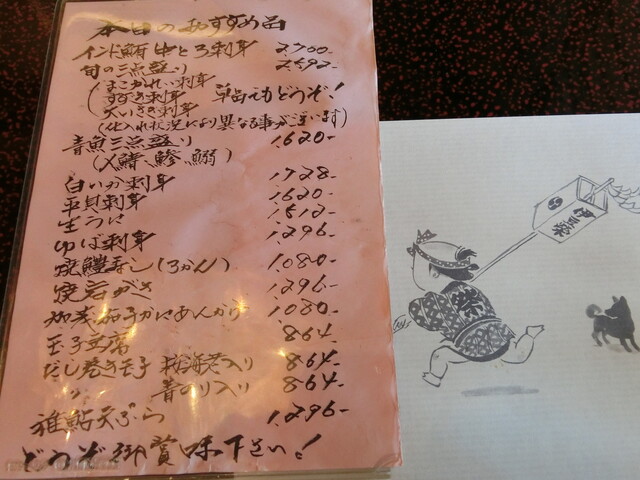 本日のおすすめ品
インド鮪中とろ刺身 2,700-
旬の三点盛り 2,592-
(まこがれい刺身
すずき刺身 単品でもどうぞ!
大いさき刺身
(仕入れ状況により異なる事が御座います)
青魚三点盛り 1,620-
(〆鯖、鯵、鰯)
白いか刺身 1,728-
平貝刺身 1,620-
生うに 1,512-
ゆば刺身 1,296-
焼鱧寿し(3かん) 1,080-
焼岩がき 1,296-
加茂茄子かにあんかけ 1,080-
玉子豆腐 864-
だし巻き玉子 桜海老入り 864-
〃 青のり入り 864-
稚鮎天ぷら 1,296-
どうぞ御賞味下さい!
伊豆榮